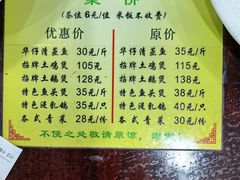 菜价
(茶位6元/位 米饭不收费)
优惠价 原价
华仔清蒸鱼 30元/斤 华仔清蒸鱼 35元/斤
招牌土鸡煲 105元 招牌土鸡煲 115元
招牌土鹅煲 128元 招牌土鹅煲 138元
特色鱼头煲 35元/斤 特色鱼头煲 38元/斤
特色渡乳鸽 35元/只 特色渡乳鸽 40元/只
各式青菜 28元/份 各式青菜 30元/份
不便之处敬请原谅,谢谢!